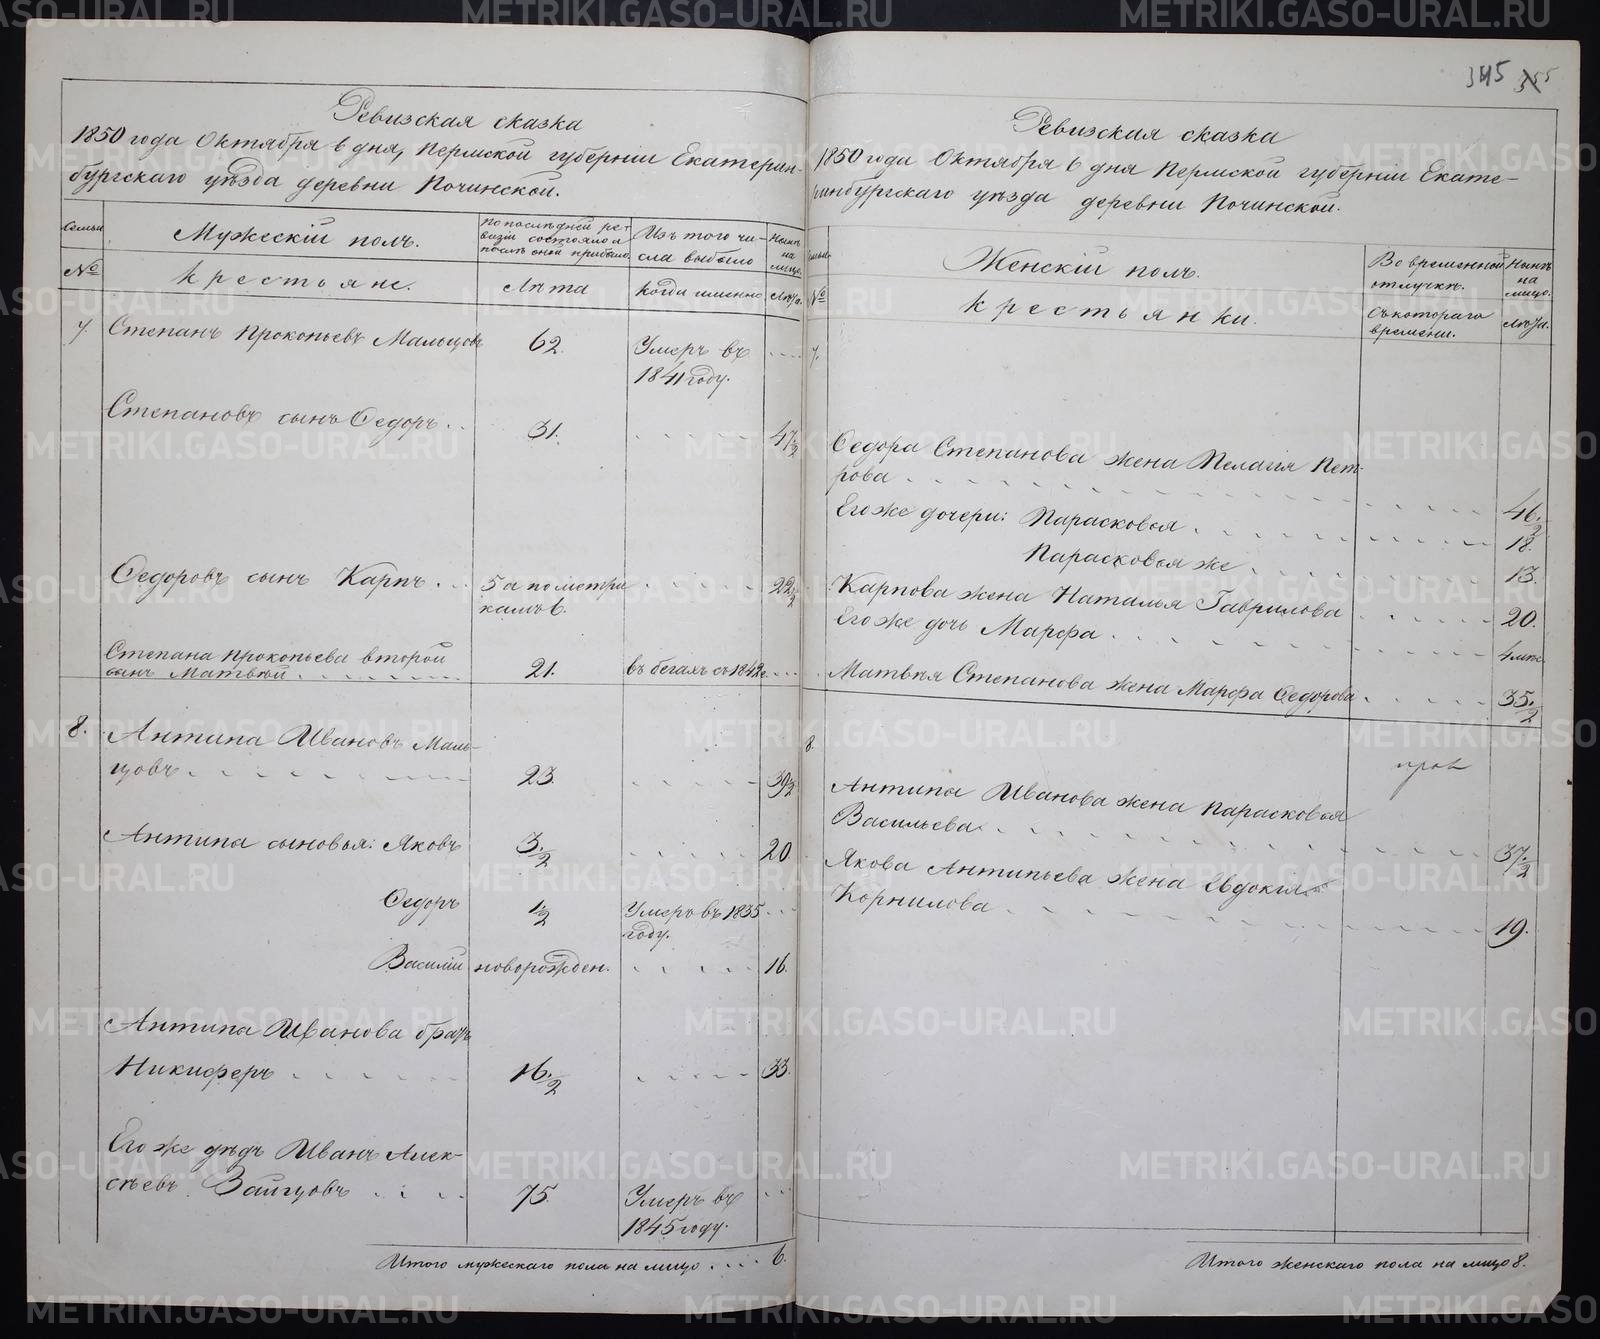 Ревизская сказка
1850 года Октября 6 дня, Пермской губерніи Екатерин-
бургскаго уѣзда деревни Починской.
Семьи
Мужескій полъ.
По послѣдней ре-
визіи состояло и
послѣ оной прибыло
Изъ того чи-
сла выбыло
Нынѣ
на
лицо.
№
Крестьяне.
Лѣта
Когда именно
Лѣта.
7.
Степанъ Прокопьевъ Мальцовъ
62.
Умеръ въ
1841 году.
Степановъ сынъ Ѳедоръ
31.
47½
Ѳедоровъ сынъ Карпъ
5 а по метри
камъ 6.
22½
Степана Прокопьева второй
сынъ Матвѣй
21.
въ бегахъ съ 1842 г.
8.
Антипа Ивановъ Маль-
цовъ
23.
39½
Антипа сыновья: Яковъ
3.½
20
Ѳедоръ
½
Умеръ въ 1835
году.
Василій
новорожден.
16.
Антипа Иванова братъ
Никифоръ
16.½
33.
Его же дѣдъ Иванъ Алек-
сѣевъ Зайцовъ
75.
Умеръ въ
1845 году.
Итого мужескаго пола на лицо 6.
345 355
Ревизская сказка
1850 года Октября 6 дня Пермской губерніи Екате-
ринбургскаго уѣзда деревни Починской.
Семьи
Женскій полъ.
Во временной
отлучкѣ.
Нынѣ
на
лицо.
№
Крестьянки.
Съ котораго
времени.
Лѣта.
7.
Ѳедора Степанова жена Пелагія Пет-
рова
46.½
Его же дочери: Парасковья
18.
Парасковья же
13.
Карпова жена Наталья Гаврилова
20.
Его же дочь Марфа
4 мѣс.
Матвѣя Степанова жена Марфа Ѳедорова
35.½
8.
Антипа Иванова жена Парасковья
Васильева
37.½
Якова Антипьева жена Евдокія
Корнилова
19.
Итого женскаго пола на лицо 8.
METRIKI.GASO-URAL.RU